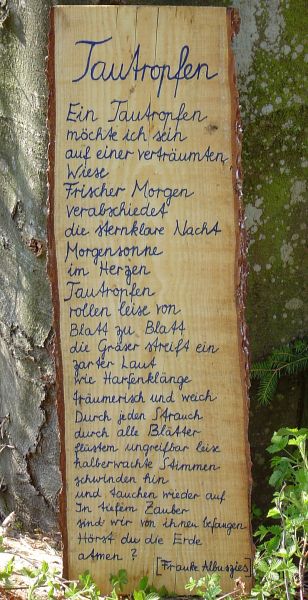 Tautropfen
Ein Tautropfen
möchte ich sein
auf einer verträumten
Wiese
Frischer Morgen
verabschiedet
die sternklare Nacht
Morgensonne
im Herzen
Tautropfen
rollen leise von
Blatt zu Blatt
die Gräser streift ein
zarter Laut
wie Harfenklänge
träumerisch und weich
Durch jeden Strauch
durch alle Blätter
flüstern ungreifbar leise
halberwachte Stimmen
schwinden hin
und tauchen wieder auf
In tiefem Zauber
sind wir von ihnen befangen
Hörst du die Erde
atmen ?
[Frauke Albuszies]